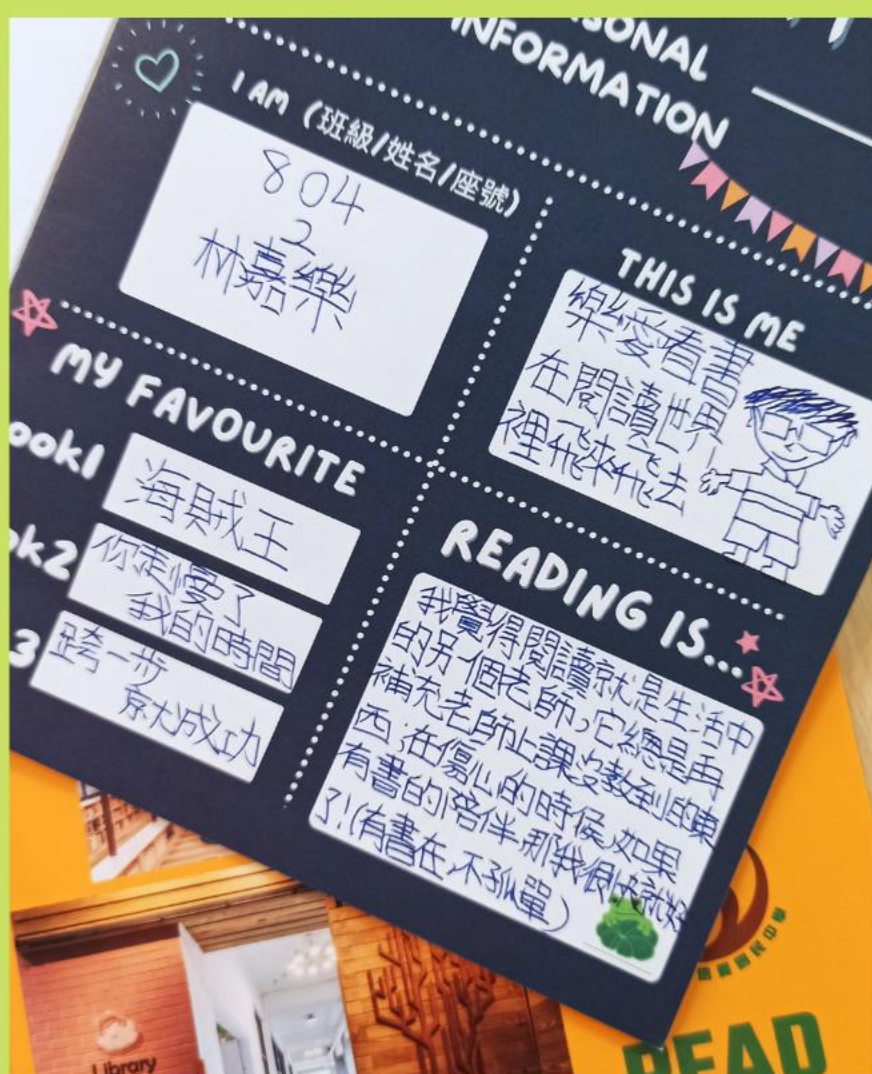 SONAL
INFORMATION
I AM (班級/姓名/座號)
804
2
林嘉樂
THIS IS ME
樂愛看書
在閱讀世界
裡飛來飛去
MY FAVOURITE
ook1
海賊王
ok2
你走慢了
我的時間
3
跨一步
就成功
READING IS...
我覺得閱讀就是生活中
的另一個老師,它總是再
補充老師上課沒教到的東
西;在傷心的時候,如果
有書的陪伴那我很快就好
了!(有書在,不孤單)
Library
國民中學
READ